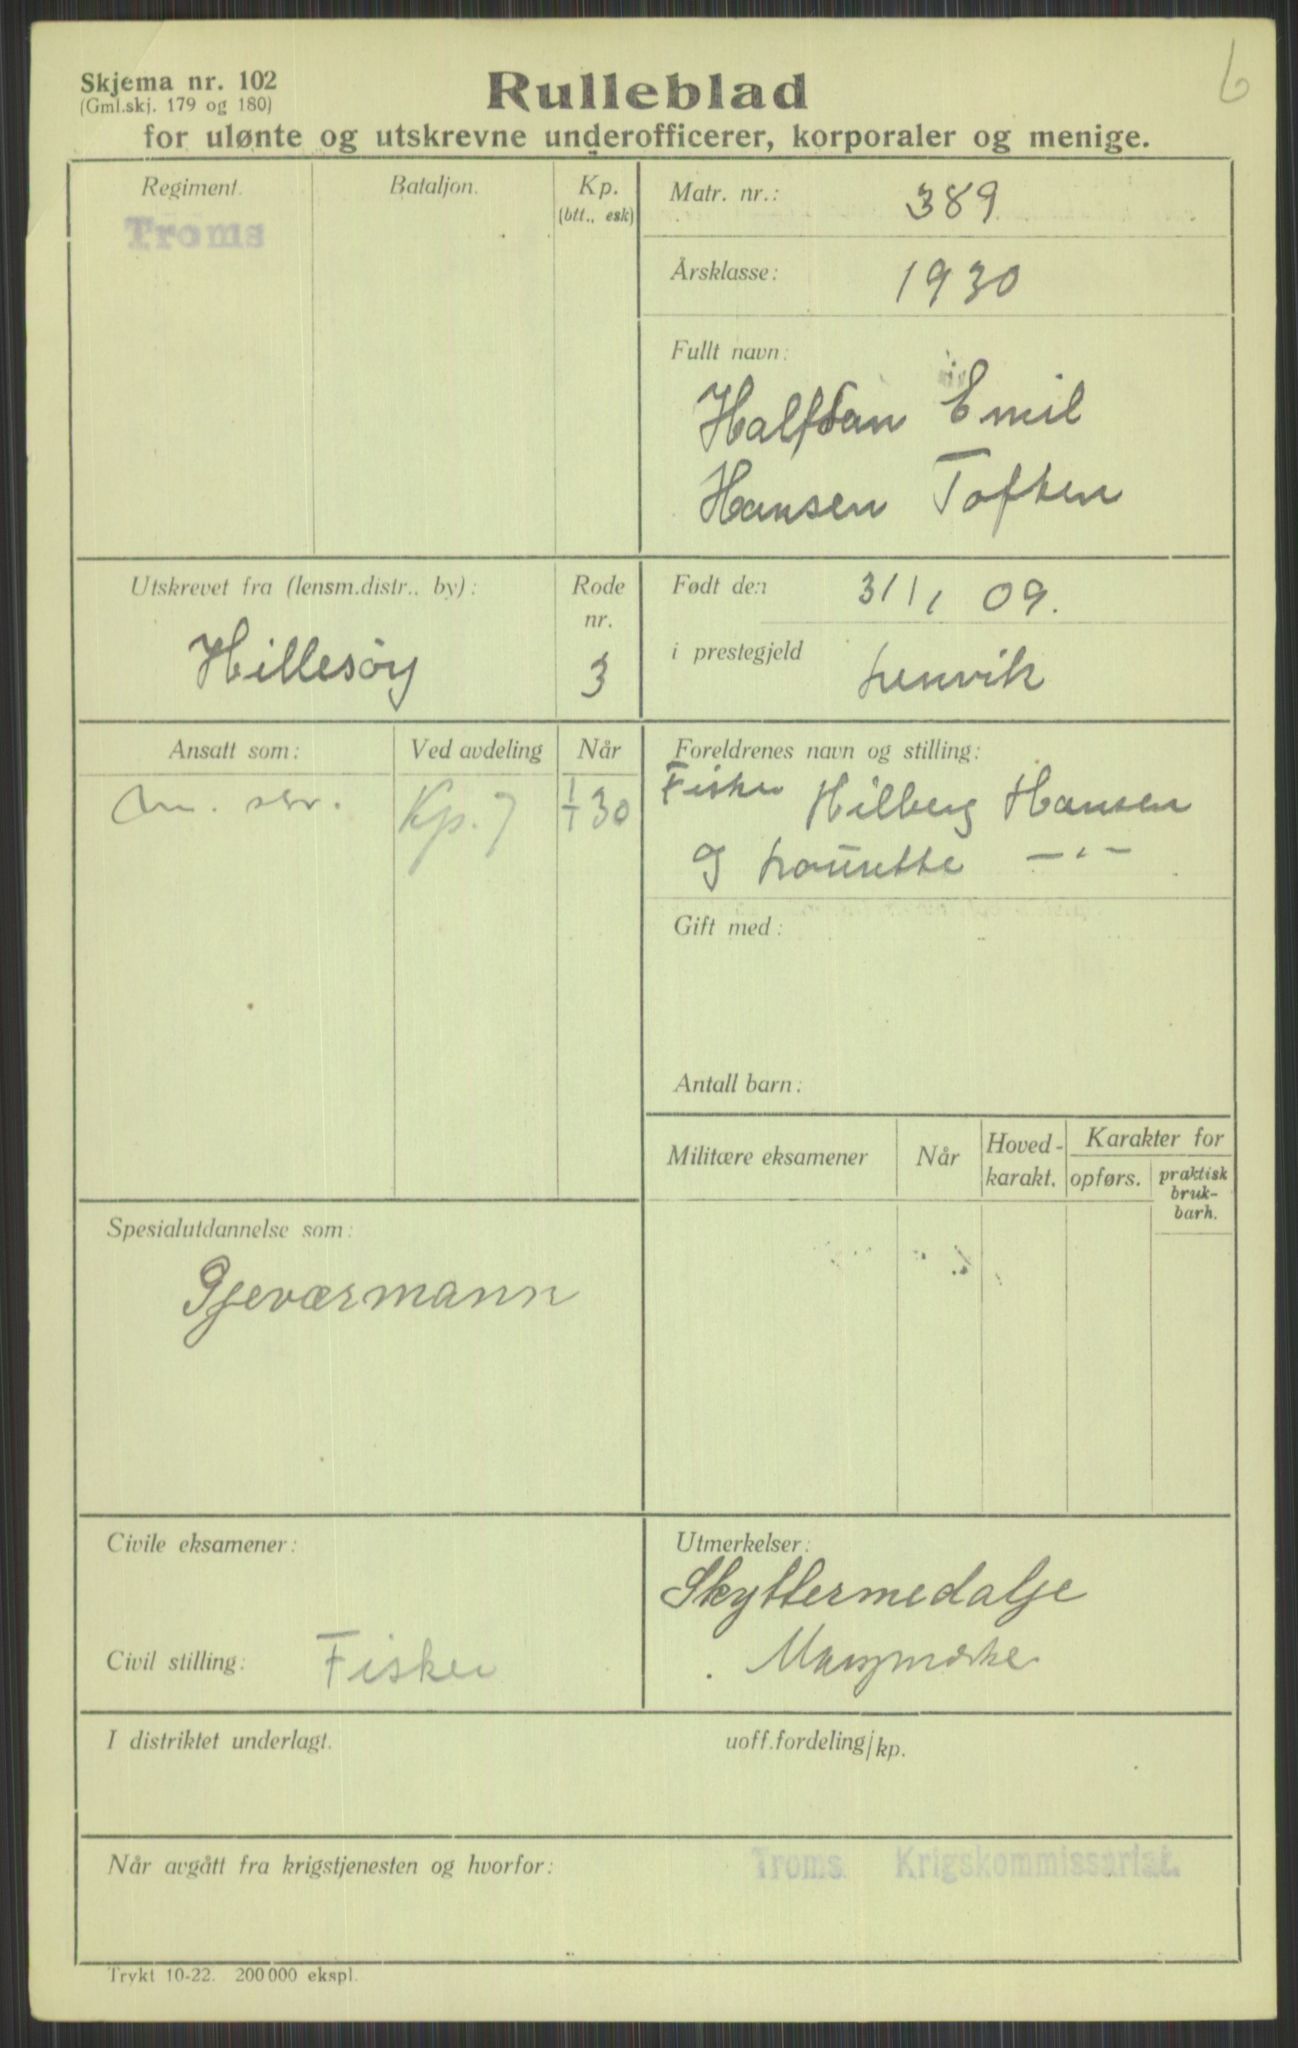 6
Skjema nr. 102
(Gml.skj. 179 og 180)
Rulleblad
for ulønte og utskrevne underofficerer, korporaler og menige.
Regiment.
Bataljon.
Kp.
(btt., esk)
Troms
Matr. nr.: 389
Årsklasse: 1930
Fullt navn:
Halfdan Emil
Hansen Toften
Utskrevet fra (lensm.distr., by):
Hillesöy
Rode
nr.
3
Født den 31/1 09.
i prestegjeld Lenvik
Ansatt som:
Ved avdeling
Når
Kp. 7
1/1 30
Foreldrenes navn og stilling:
Fisker Hilberg Hansen
og Laurette —"—
Gift med:
Antall barn:
Militære eksamener
Når
Hoved-
karakt.
Karakter for
opførs.
praktisk
bruk-
barh.
Spesialutdannelse som:
Gjeværmann
Civile eksamener:
Civil stilling: Fisker
Utmerkelser:
Skyttermedalje
I distriktet underlagt.
uoff.fordeling/kp.
Når avgått fra krigstjenesten og hvorfor:
Troms Krigskommissariat.
Trykt 10-22. 200 000 ekspl.